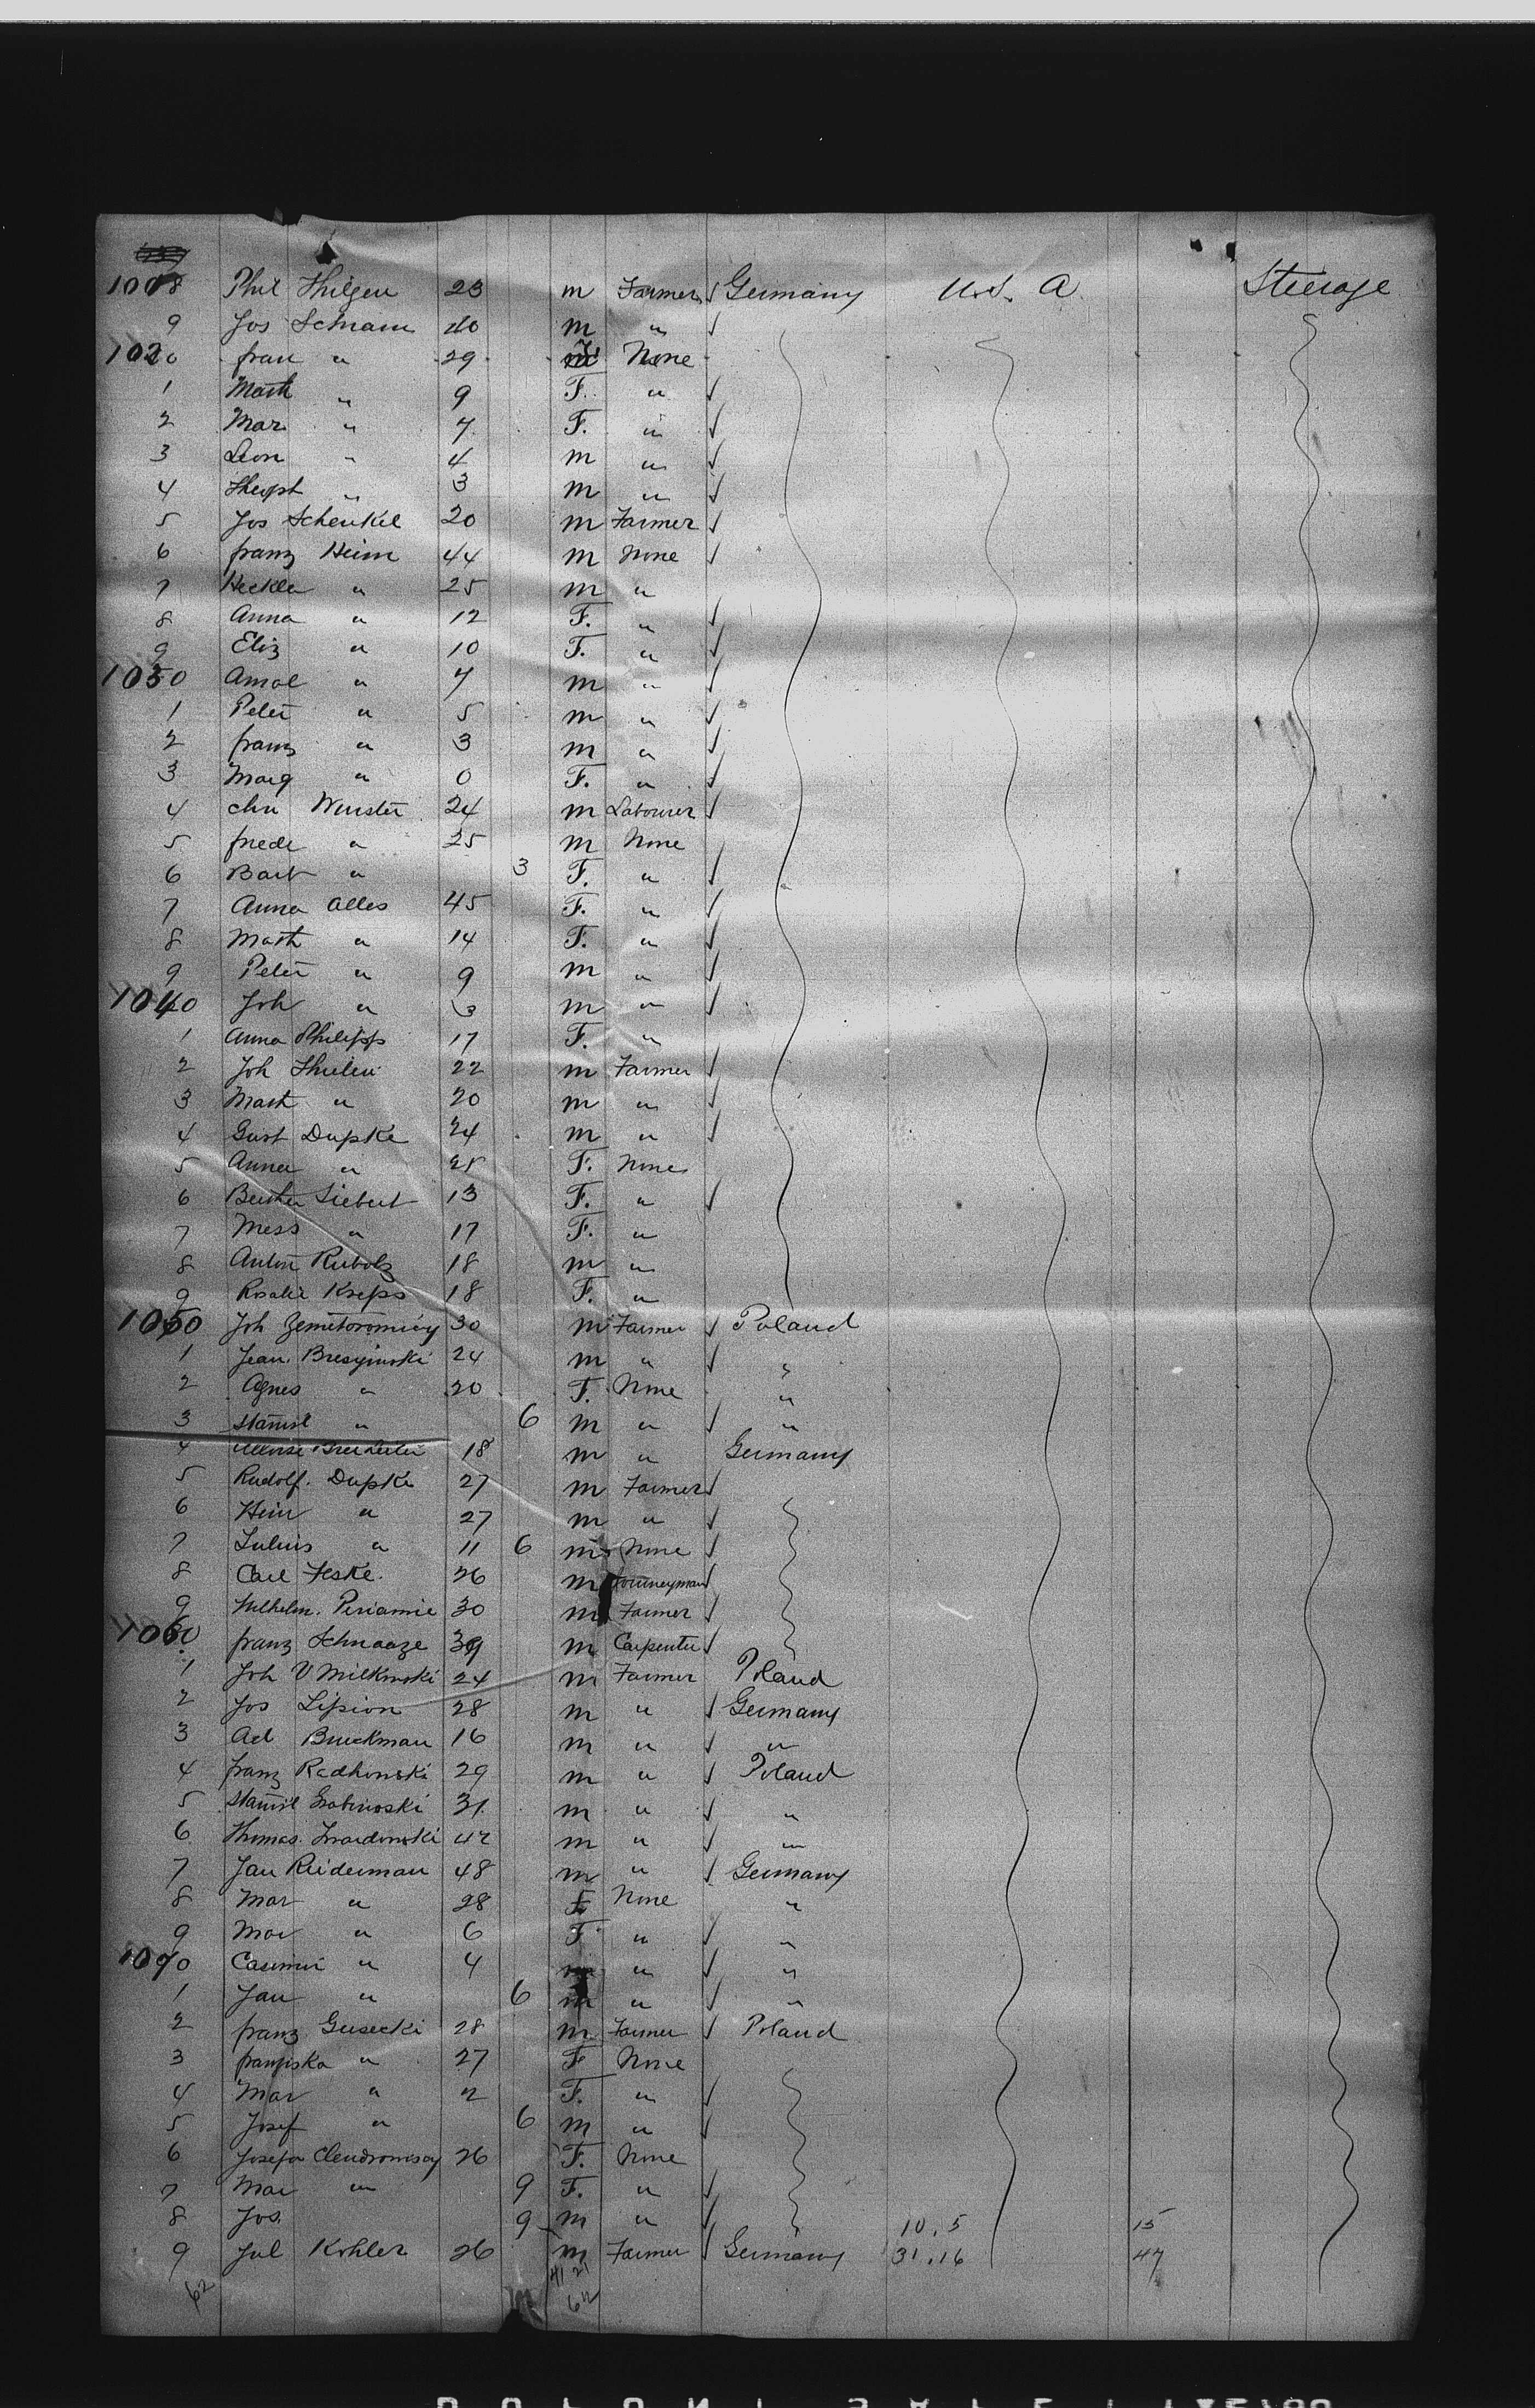 1008 Phil Thilgen 23 m Farmer √ Germany U.S. A. Steerage
9 Jos Schram 40 m " √
1020 frau " 29 None
1 Math " 9 F. " √
2 Mar " 7 F. " √
3 Leon " 4 m " √
4 Theoph " 3 m " √
5 Jos Schenkel 20 m Farmer √
6 franz Heim 44 m None √
7 Heckla " 25 m "
8 Anna " 12 F. " √
9 Eliz " 10 F. " √
1030 Amal " 7 m " √
1 Peter " 5 m " √
2 franz " 3 m " √
3 Marg " 0 F. " √
4 Chr Wurster 24 m Labourer √
5 friede " 25 m None
6 Bart " 3 F. " √
7 Anna Alles 45 F. " √
8 Math " 14 F. " √
9 Peter " 9 m " √
1040 Joh " 3 m " √
1 Anna Philipp 17 F. "
2 Joh Thielen 22 m Farmer √
3 Math " 20 m " √
4 Gust Dupke 24 m " √
5 Anna " 25 F. None
6 Bertha Liebert 13 F. " √
7 Mess " 17 F. "
8 Anton Rubolz 18 m "
9 Rosalie Kreps 18 F. "
1050 Joh 30 m Farmer √ Poland
1 Jean. Bresyinski 24 m " √ "
2 Agnes " 20 F. None "
3 Stanisl " 6 m " √ "
4 18 m " Germany
5 Rudolf. Dupke 27 m Farmer √
6 Heinr " 27 m " √
7 Julius " 11 6 m None √
8 Carl Feske. 26 m Journeyman √
9 Wilhelm. 30 m Farmer √
1060 franz Schnaaze 39 m Carpenter √
1 Joh V Milkowski 24 m Farmer Poland
2 Jos Lipion 28 m " √ Germany
3 Ad Bruckman 16 m " √ "
4 franz Radhonski 29 m " √ Poland
5 Stanisl Grabinoski 31 m " √ "
6 Thomas. 42 m " √ "
7 Jan Riederman 48 m " √ Germany
8 Mar " 28 F. None "
9 Mar " 6 F. " √ "
1070 Casimir " 4 m " √ "
1 Jan " 6 m " √ "
2 franz Gusecki 28 m Farmer √ Poland
3 franziska " 27 F None
4 Mar " 2 F. " √
5 Josef " 6 m " √
6 Josefa 26 F. None
7 Mar " 9 F. " √
8 Jos. 9 m " √ 10.5 15
9 Jul Kohler 26 m Farmer √ Germany 31.16 47
62 41 21
62